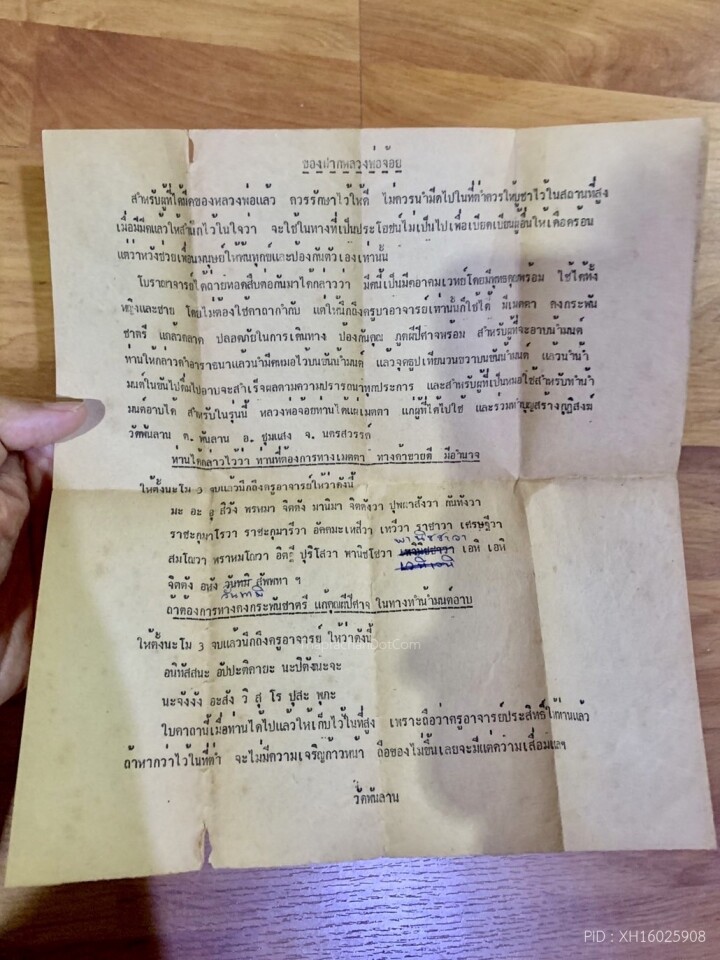 ของฝากหลวงพ่อจ้อย
สำหรับผู้ที่ได้มีดของหลวงพ่อแล้ว ควรรักษาไว้ให้ดี ไม่ควรนำมีดไปในที่ต่ำควรให้บูชาไว้ในสถานที่สูง
เมื่อมีมีดแล้วให้สำนึกไว้ในใจว่า จะใช้ในทางที่เป็นประโยชน์ไม่เป็นไปเพื่อเบียดเบียนผู้อื่นให้เดือดร้อน
แต่ว่าหวังช่วยเพื่อนมนุษย์ให้พ้นทุกข์และป้องกันตัวเองเท่านั้น
โบราณาจารย์ได้ถ่ายทอดสืบต่อกันมาได้กล่าวว่า มีดนี้เป็นมีดอาคมเวทย์โดยมีพุทธคุณพร้อม ใช้ได้ทั้ง
หญิงและชาย โดยไม่ต้องใช้คาถากำกับ แต่ให้นึกถึงครูบาอาจารย์เท่านั้นก็ใช้ได้ มีเมตตา คงกระพัน
ชาตรี แคล้วคลาด ปลอดภัยในการเดินทาง ป้องกันคุณ ภูตผีปีศาจพร้อม สำหรับผู้ที่จะอาบน้ำมนต์
ท่านให้กล่าวคำอาราธนาแล้วนำมีดหมอไว้บนขันน้ำมนต์ แล้วจุดธูปเทียนวนขวาบนขันน้ำมนต์ แล้วนำน้ำ
มนต์ในขันไปดื่มไปอาบจะสำเร็จผลตามความปรารถนาทุกประการ และสำหรับผู้ที่เป็นหมอใช้สำหรับทำน้ำ
มนต์อาบได้ สำหรับในรุ่นนี้ หลวงพ่อจ้อยท่านได้แผ่เมตตา แก่ผู้ที่ได้ไปใช้ และร่วมทำบุญสร้างกุฏิสงฆ์
วัดพันลาน ต. พันลาน อ. ชุมแสง จ. นครสวรรค์
ท่านได้กล่าวไว้ว่า ท่านที่ต้องการทางเมตตา ทางค้าขายดี มีอำนาจ
ให้ตั้งนะโม 3 จบแล้วนึกถึงครูอาจารย์ให้ว่าดังนี้
มะ อะ อุ สิวัง พรหมา จิตตัง มานิมา จิตตังวา ปุพยาสังวา กันทังวา
ราชะกุมาโรวา ราชะกุมารีวา อัคคมะเหสีวา เทวีวา ราชาวา เศรษฐีวา
พานิชชาวา
สมโณวา พราหมโณวา อิตถี ปุริโสวา พานิชโชวา เอหิ เอหิ
จิตตัง อหัง วันทมิ สัพพทา ฯ
วันทามิ
ถ้าต้องการทางคงกระพันชาตรี แก้คุณผีปีศาจ ในทางทำน้ำมนต์อาบ
ให้ตั้งนะโม 3 จบแล้วนึกถึงครูอาจารย์ ให้ว่าดังนี้
อนิทัสสนะ อัปปะติคายะ นะปิตังนะจะ
นะจังงัง อะสัง วิ สุ โร ปุสะ พุภะ
ใบคาถานี้เมื่อท่านได้ไปแล้วให้เก็บไว้ในที่สูง เพราะถือว่าครูอาจารย์ประสิทธิ์ให้ท่านแล้ว
ถ้าหากว่าไว้ในที่ต่ำ จะไม่มีความเจริญก้าวหน้า ถือของไม่ขึ้นเลยจะมีแต่ความเสื่อมแลฯ
วัดพันลาน
ThaprachanDotCom
PID : XH16025908